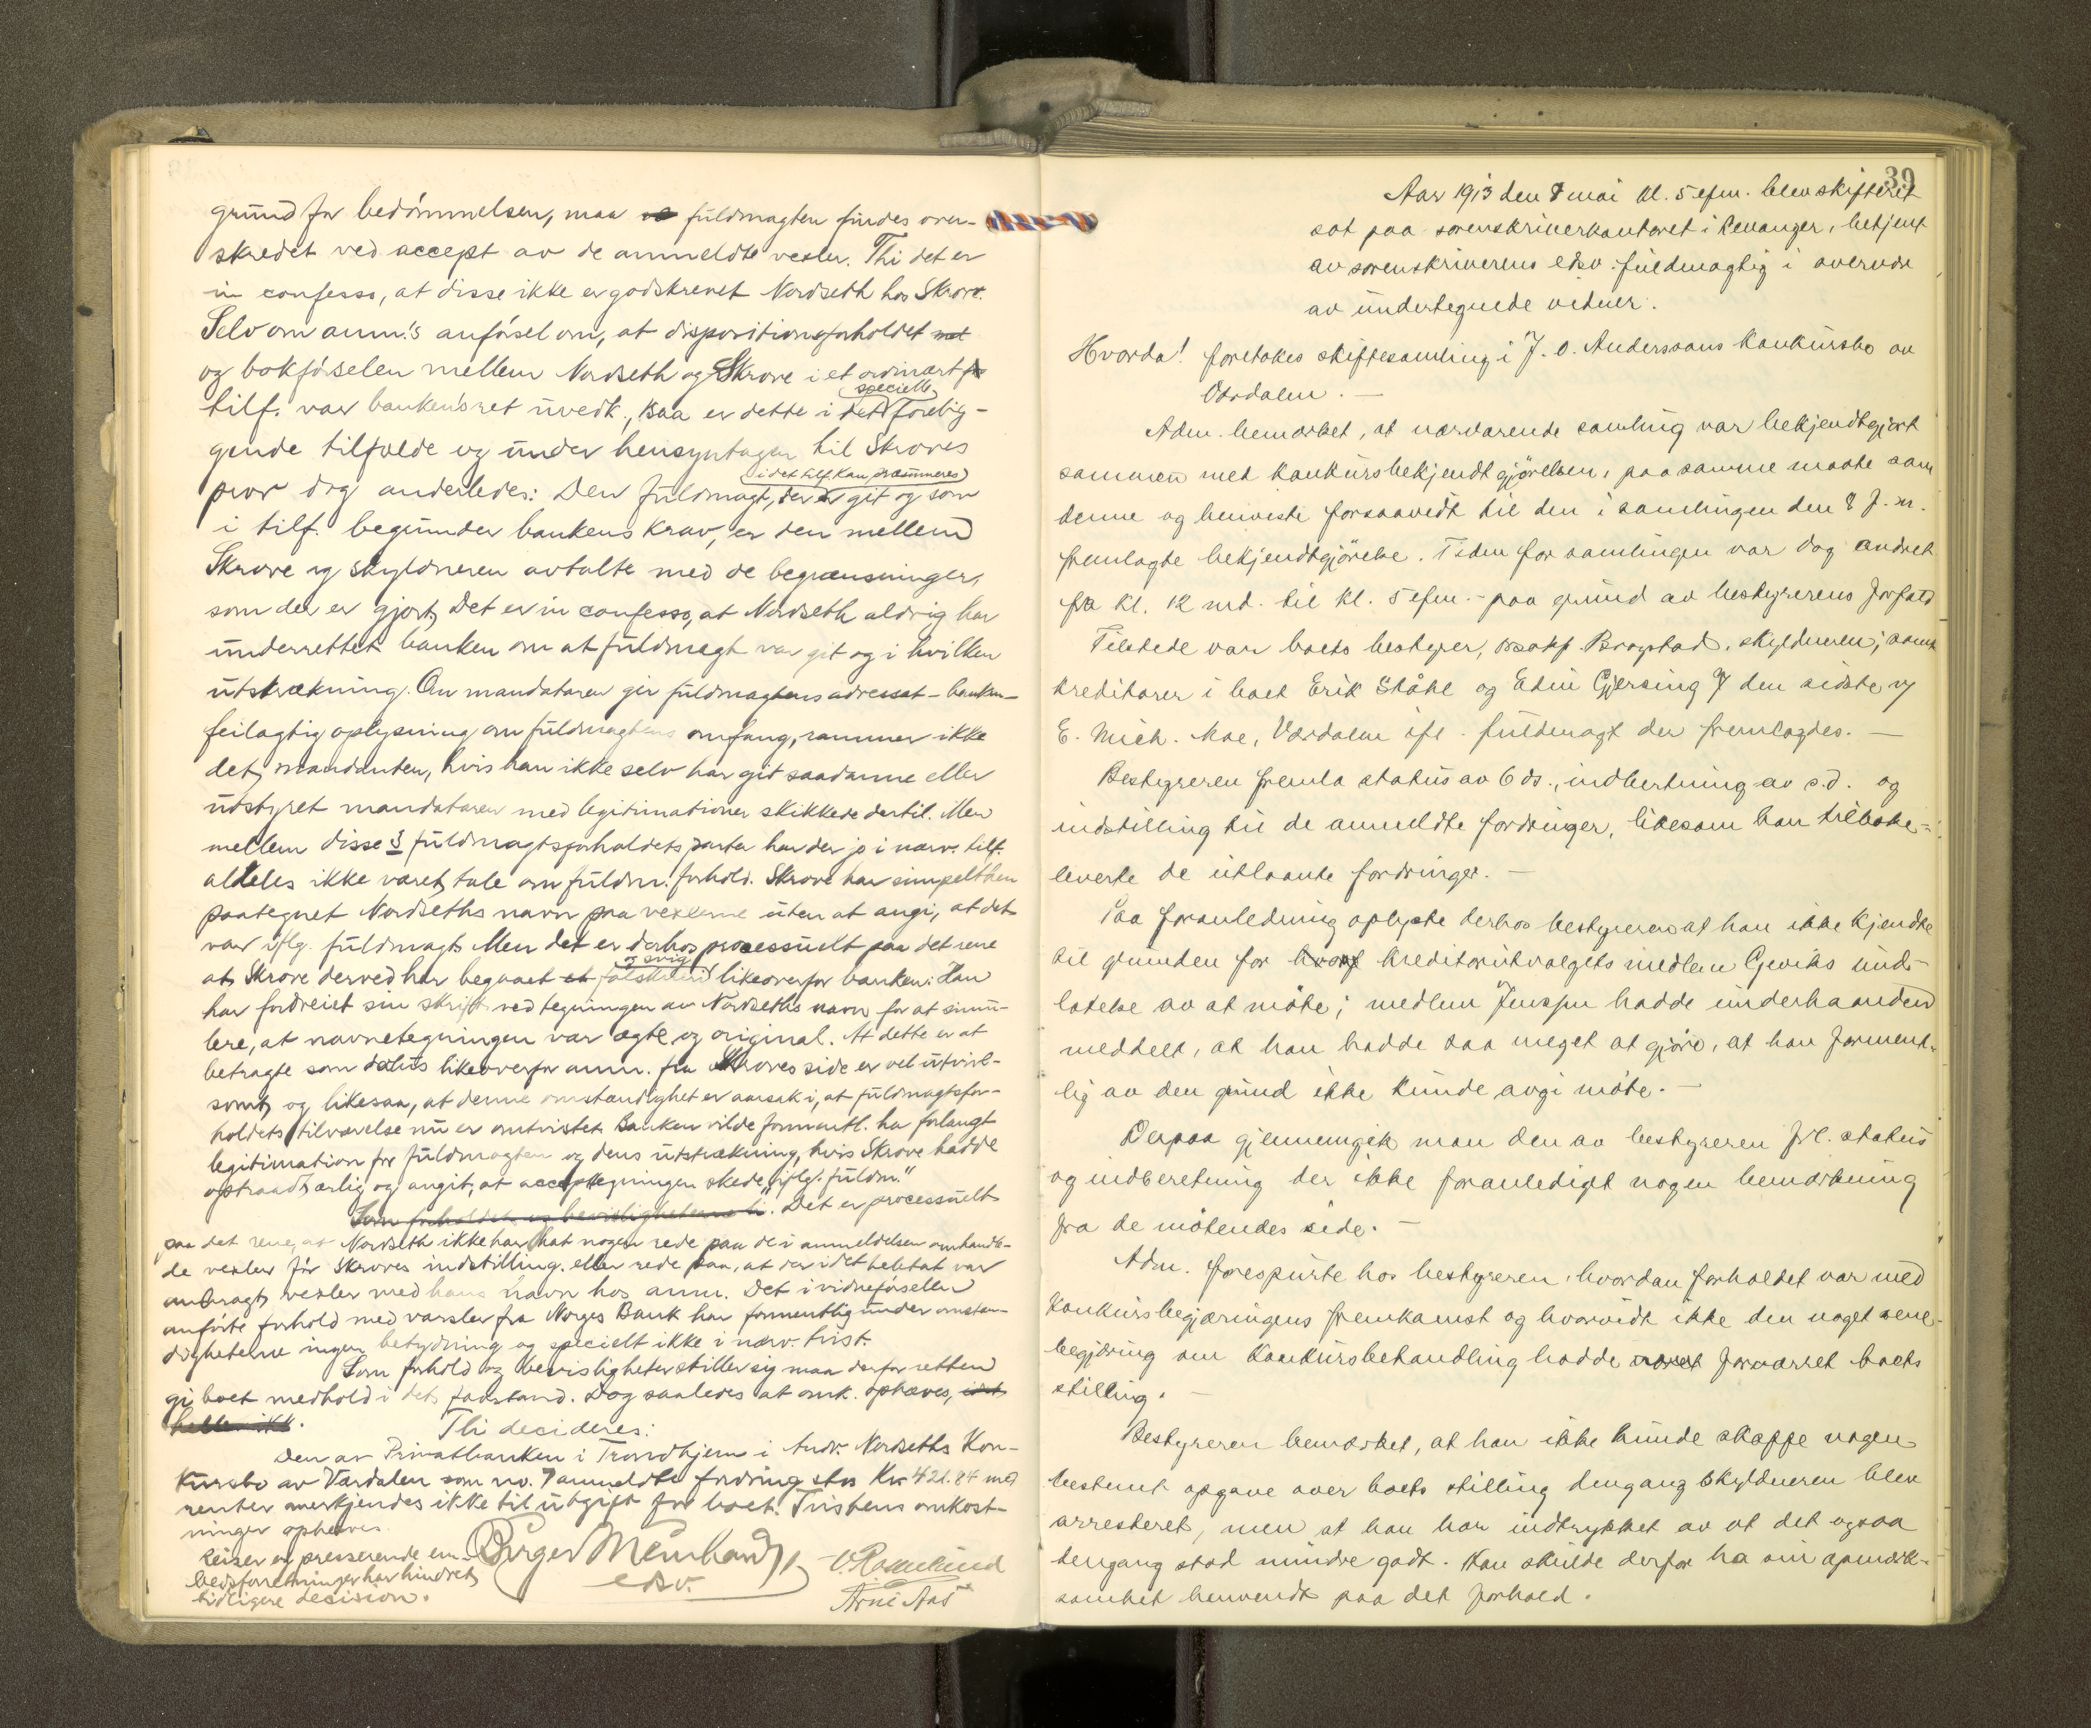 grund for bedömmelsen, maa fuldmagten findes over-
skredet ved accept av de anmeldte vexler. Thi det er
in confesso, at disse ikke er godskrevet Nordseth hos Skrove.
Selv om anm.'s anførsel om, at dispositionsforholdet
og bokførselen mellem Nordseth og Skrove i et ordinært
specielle
tilf. var banken's ret uvedk., saa er dette i det forelig-
gende tilfælde og under hensyntagen til Skroves
i det tilf. kan præsumeres
prov dog anderledes: Den fuldmagt, der er git og som
i tilf. begrunder bankens krav, er den mellem
Skrove og skyldneren avtalte med de begrænsninger,
som der er gjort. Det er in confesso, at Nordseth aldrig har
underrettet banken om at fuldmagt var git og i hvilken
utstrækning. Om mandataren gir fuldmagtens adressat - banken -
feilagtig oplysning om fuldmagtens omfang, rammer ikke
det mandanten, hvis han ikke selv har git saadanne eller
utstyret mandataren med legitimationer skikkede dertil. Men
mellem disse 3 fuldmagtsforholdets parter har der jo i nærv. tilf.
aldeles ikke været tale om fuldm. forhold. Skrove har simpelthen
paategnet Nordseths navn paa vexlerne uten at angi, at det
var iflg. fuldmagt. Men det er derhos processuelt paa det rene
og svig
at Skrove derved har begaaet et falskneri likeoverfor banken: Han
har fordreiet sin skrift ved tegningen av Nordseths navn for at simu-
lere, at navnetegningen var ægte og original. At dette er at
betragte som dolus likeoverfor anm. fra Skroves side er vel utvivl-
somt og likesaa, at denne omstændighet er aarsak i, at fuldmagtsfor-
holdets tilværelse nu er omtvistet. Banken vilde formentl. ha forlangt
legitimation for fuldmagten og dens utstrækning, hvis Skrove hadde
optraadt ærlig og angit, at accepttegningen skede "iflg. fuldm."
Som forholdet og bevisligheterne. Det er processuelt
paa det rene, at Nordseth ikke har hat nogen rede paa de i anmeldelsen omhandle-
de vexler før Skroves indstilling, eller rede paa, at der i det heletat var
anbragt vexler med hans navn hos anm. Det i vidneførselen
anførte forhold med varsler fra Norges Bank har formentlig under omstæn-
digheterne ingen betydning og specielt ikke i nærv. tvist.
Som forhold og bevisligheter stiller sig maa derfor retten
gi boet medhold i dets paastand. Dog saaledes at omk. ophæves,
heller ikk.
Thi decideres:
Den av Privatbanken i Trondhjem i Andr. Nordseths Kon-
kursbo av Værdalen som no. 7 anmeldte fordring stor Kr. 421.84 med
renter anerkjendes ikke til utgift for boet. Tvistens omkost-
ninger ophæves.
Reiser og presserende em-
bedsforretninger har hindret
tidligere decision.
Birger Meinhardt
edsv.
Arne Aas
39
Aar 1913 den 8 mai kl. 5 efm. blev skifteret
sat paa sorenskriverkontoret i Levanger, betjent
av sorenskriverens edsv. fuldmægtig i overvær
av undertegnede vidner.
Hvorda! foretokes skiftesamling i J. O. Anderssons konkursbo av
Værdalen. -
Adm. bemærket, at nærværende samling var bekjendtgjort
sammen med konkursbekjendtgjörelsen, paa samme maate som
denne og henviste forsaavidt til den i samlingen den 8 f. m.
fremlagte bekjendtgjörelse. Tiden for samlingen var dog ændret
fra kl. 12 md. til kl. 5 efm. - paa grund av bestyrerens forfald
Tilstede var boets bestyrer, osakf. Bragstad, skyldneren, samt
kreditorer i boet Erik Ståhl og Edin Gjersing, den sidste og
E. Mich. Moe, Værdalen ifl. fuldmagt der fremlagdes. -
Bestyreren fremla status av 6 ds., indbertning av s.d. og
indstilling til de anmeldte fordringer, likesom han tilbake-
leverte de utlaante fordringer. -
Paa foranledning oplyste derhos bestyreren at han ikke kjendte
til grunden for kreditorutvalgets medlem Gjeviks und-
latelse av at möte; medlem Jenssen hadde underhaanden
meddelt, at han hadde saa meget at gjöre, at han forment-
lig av den grund ikke kunde avgi möte. -
Derpaa gjennemgik man den av bestyreren fr. status
og indberetning der ikke foranlediget nogen bemærkning
fra de mötendes side. -
Adm. forespurte hos bestyreren, hvordan forholdet var med
konkursbegjæringens fremkomst og hvorvidt ikke den noget sene
begjæring om konkursbehandling hadde været forværret boets
stilling. -
Bestyreren bemærket, at han ikke kunde skaffe nogen
bestemt opgave over boets stilling dengang skyldneren blev
arresteret, men at han har indtrykket av at det ogsaa
dengang stod mindre godt. Han skulde derfor ha sin opmærk-
somhet henvendt paa det forhold.